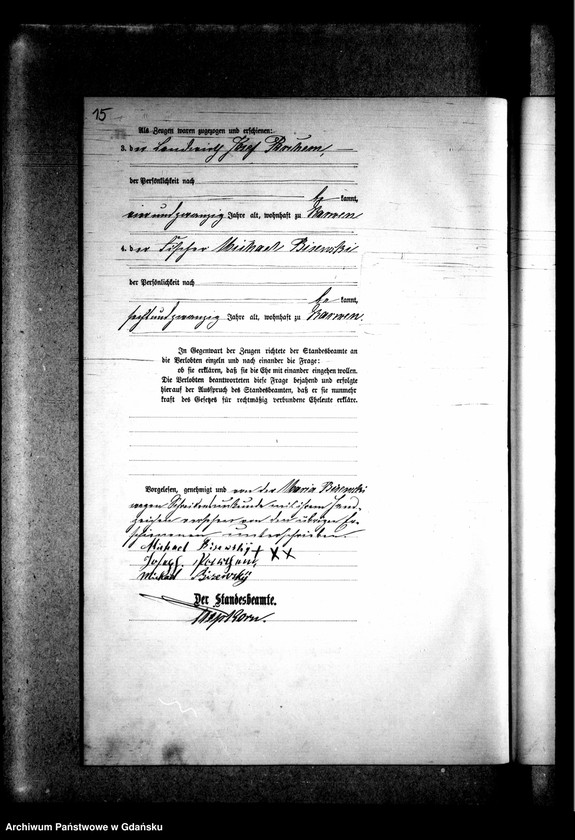 15
Als Zeugen waren zugezogen und erschienen:
3. der Landwirth Josef
der Persönlichkeit nach
be kannt,
vierundzwanzig Jahre alt, wohnhaft zu Karwen
4. der Fischer Michael Bisewski
der Persönlichkeit nach
be kannt,
sechsundzwanzig Jahre alt, wohnhaft zu Karwen.
In Gegenwart der Zeugen richtete der Standesbeamte an
die Verlobten einzeln und nach einander die Frage:
ob sie erklären, daß sie die Ehe mit einander eingehen wollen.
Die Verlobten beantworteten diese Frage bejahend und erfolgte
hierauf der Ausspruch des Standesbeamten, daß er sie nunmehr
kraft des Gesetzes für rechtmäßig verbundene Eheleute erkläre.
Vorgelesen, genehmigt und von der Maria Bisewski
wegen Schreibensunkunde mit ihrem Hand-
zeichen versehen von den übrigen Er-
schienenen unterschrieben.
Michael Bisewsky + XX
Joseph
Michael Bisewsky
Der Standesbeamte.